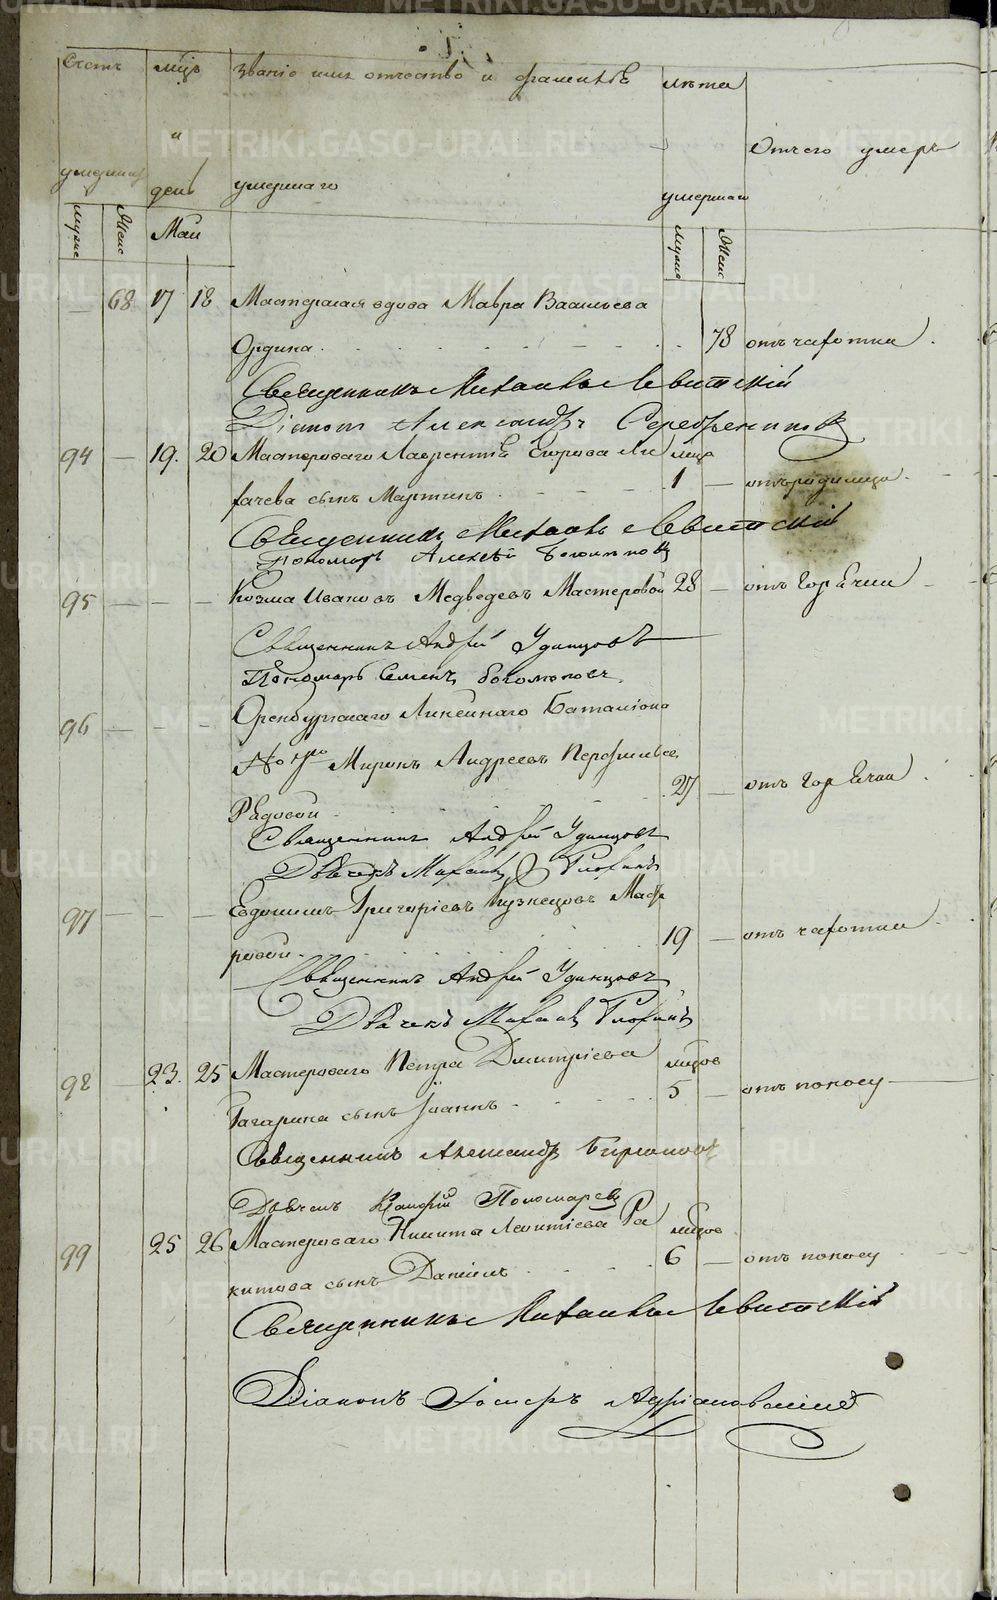 Счетъ мцъ званіе имя отчество и фамилія лѣта
и Отчего умеръ
умершихъ день умершаго умершаго
муже Женс Маи муже Женс
— 68 17 18 Мастерская вдова Мавра Васильева
Ордина 78 отъ чахотки
Священникъ Михаилъ Левитскій
Діаконъ Александръ Серебрениковъ
94 — 19. 20 Мастероваго Лаврентія Егорова Ли мцъ
хачева сынъ Мартинъ 1 — отъ родимца
Священникъ Михаилъ Левитскій
Пономарь Алексѣй
95 — — — Козма Ивановъ Медведевъ Мастеровой 28 — отъ Горячки
Священникъ Андрей Удинцовъ
Пономарь Семенъ Богомоловъ
96 — — — Оренбургскаго Линейнаго Баталіона
Миронъ Андреевъ
Рядовой 27 — отъ Горячки
Священникъ Андрей Удинцовъ
Дьячекъ Михаилъ
97 — — — Евдокимъ Григорьевъ Кузнецовъ Масте
ровой 19 — отъ чахотки
Священникъ Андрей Удинцовъ
Дьячекъ Михаилъ
98 — 23. 25 Мастероваго Петра Дмитріева мцовъ
Гагарина сынъ Іоаннъ 5 — отъ поносу
Священникъ Александръ
Дьячекъ Пономаревъ
99 25 26 Мастероваго Никиты Леонтіева Ра мцовъ
китова сынъ Даніилъ 6 — отъ поносу
Священникъ Михаилъ Левитскій
Діаконъ Адріановскій
METRIKI.GASO-URAL.RU